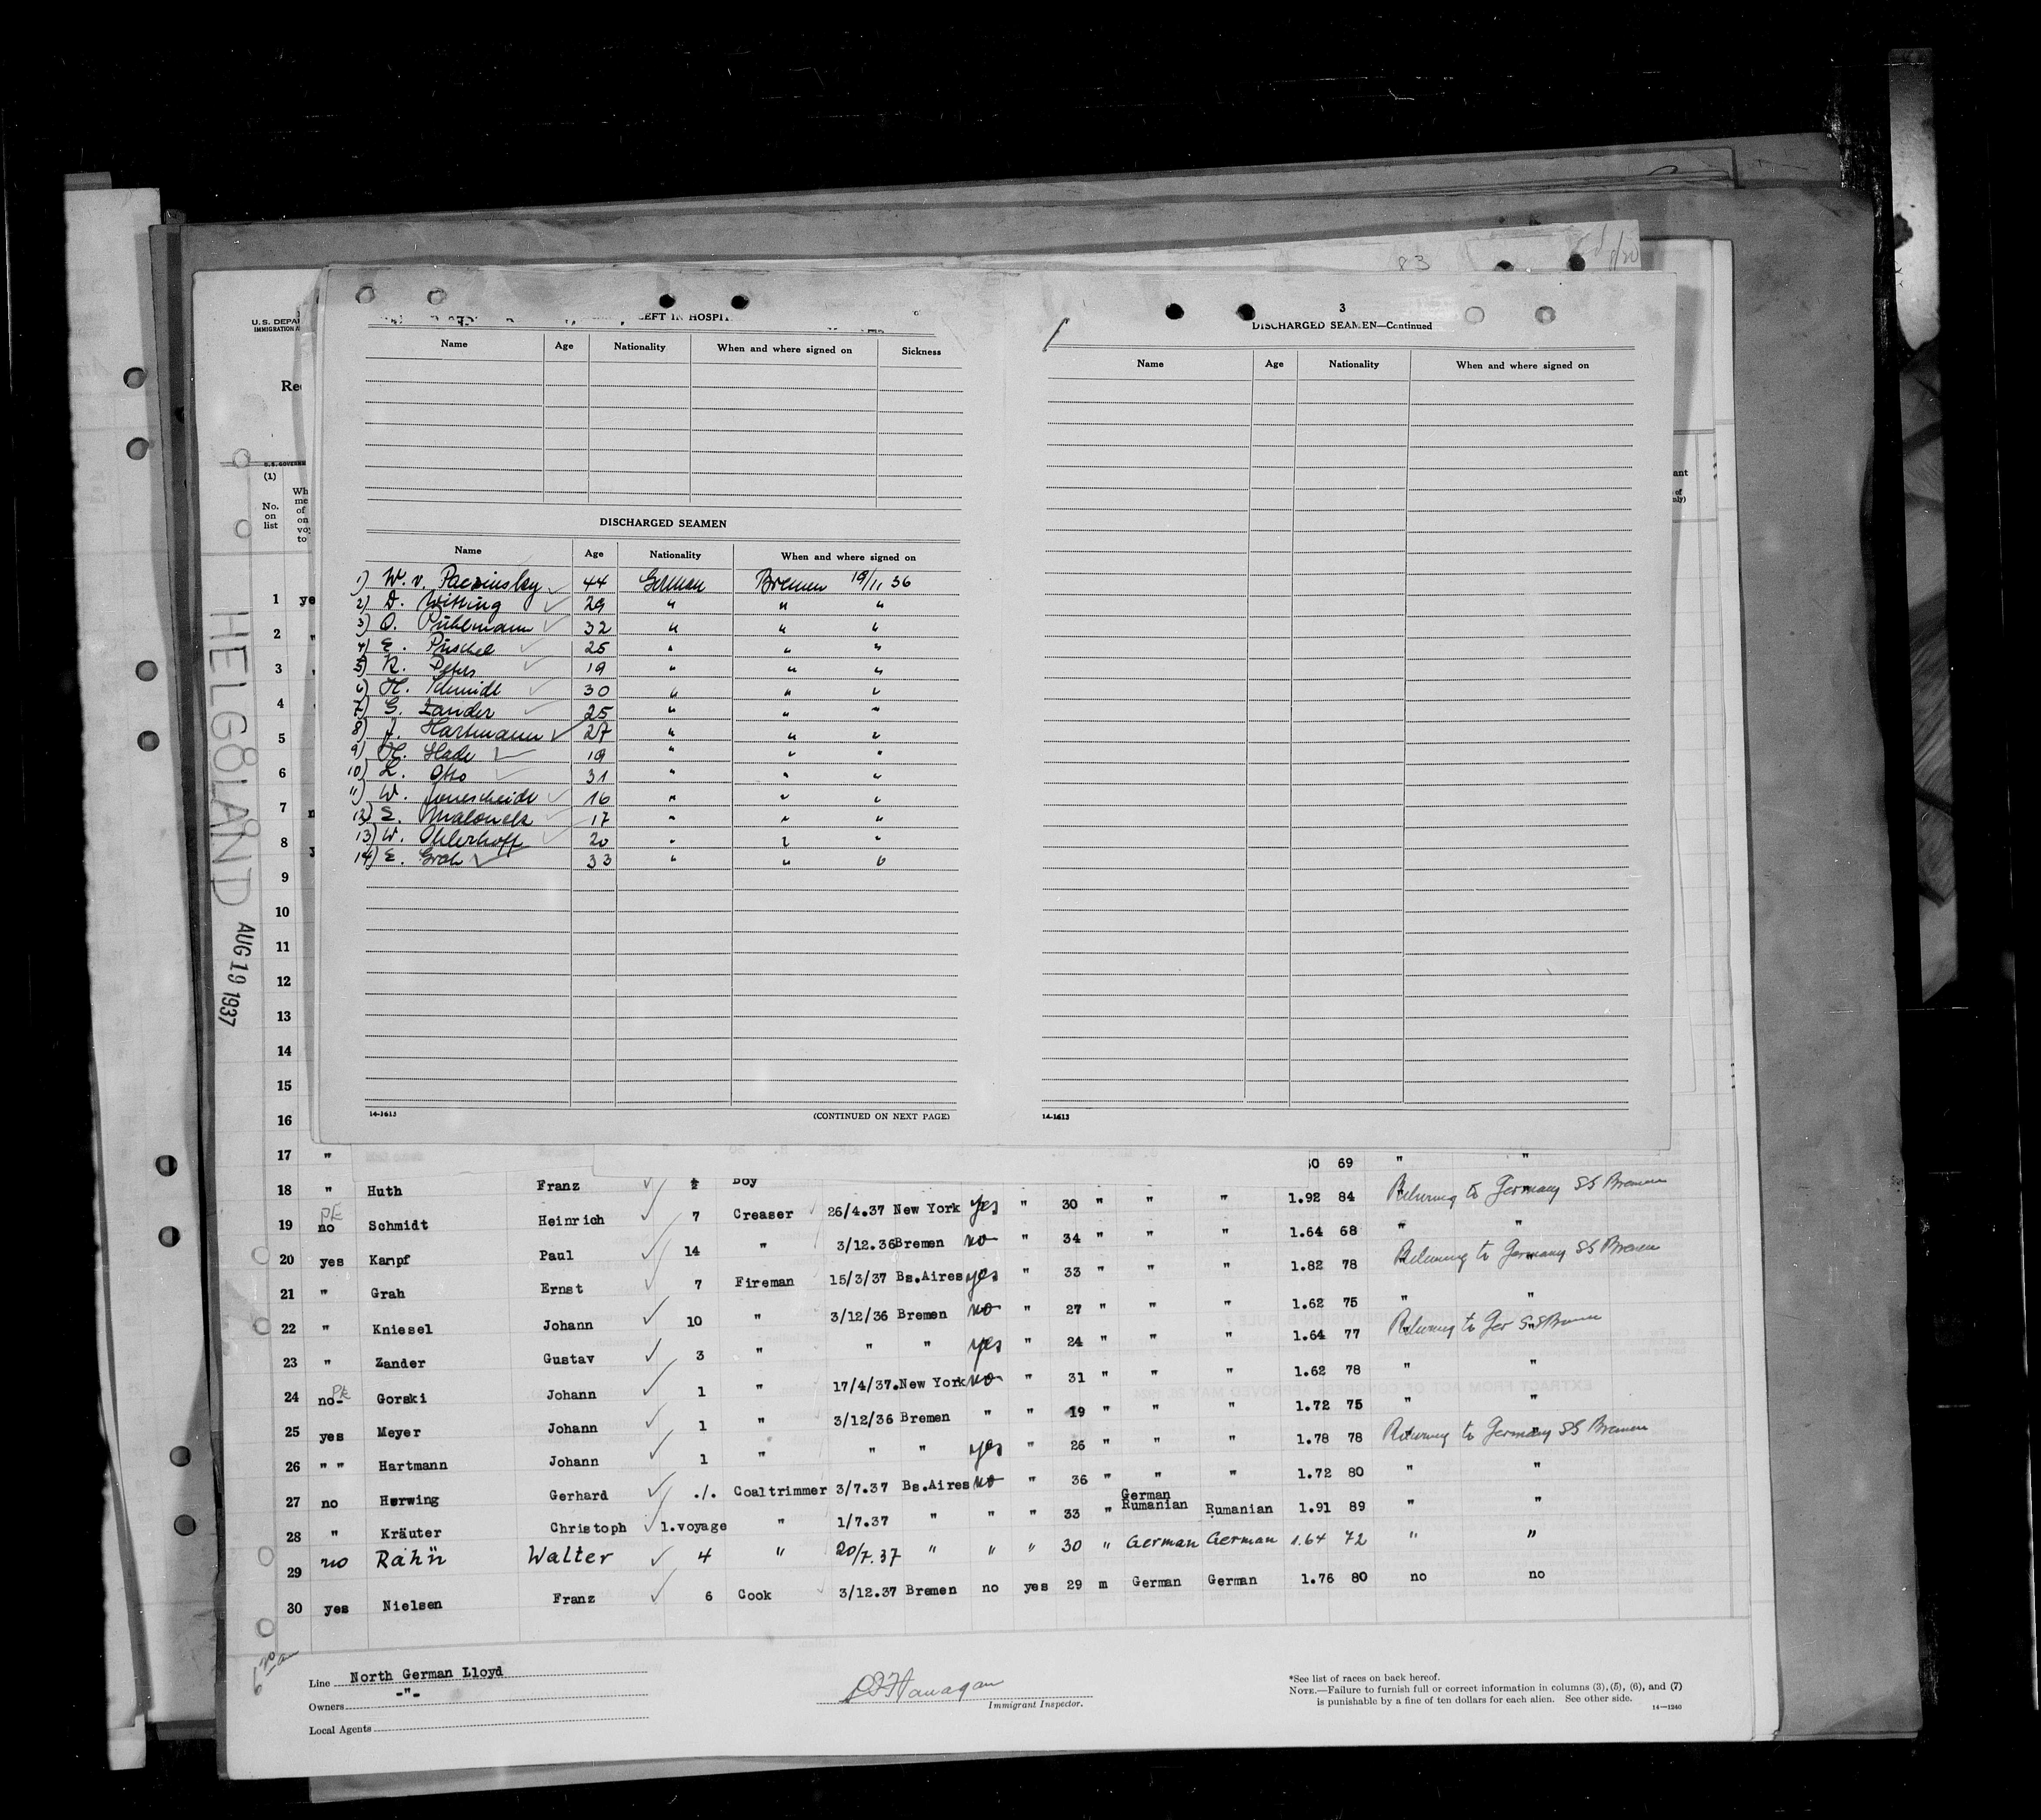 83
U.S. DEPA
IMMIGRATION A
Re
U.S. GOVERNM
(1)
No. on list
Wh
me
of
on
vo
to
HELGOLAND
AUG 19 1937
LEFT IN HOSPI
Name Age Nationality When and where signed on Sickness
DISCHARGED SEAMEN
Name Age Nationality When and where signed on
1) W. v. Paczinsky 44 German Bremen 19/11 36
2) D. Witting 29 " " "
3) O. Pühlmann 32 " " "
4) E. Püschel 25 " " "
5) R. Peters 19 " " "
6) H. Schmidt 30 " " "
7) G. Zander 25 " " "
8) J. Hartmann 27 " " "
9) H. 19 " " "
10) L. Otto 31 " " "
11) W. 16 " " "
12) E. 17 " " "
13) W. Ohlerhoff 20 " " "
14) E. Grah 33 " " "
14-1613
(CONTINUED ON NEXT PAGE)
3
DISCHARGED SEAMEN—Continued
Name Age Nationality When and where signed on
14-1613
1 ye
2 "
3
4
5
6
7
8
9
10
11
12
13
14
15
16
17 " 69 " "
18 " Huth Franz ½ Boy 30 " " " 1.92 84 Returning to Germany SS Bremen
19 no Schmidt Heinrich 7 Creaser 26/4.37 New York yes " 34 " " " 1.64 68 " "
20 yes Kampf Paul 14 " 3/12.36 Bremen no " 33 " " " 1.82 78 Returning to Germany SS Bremen
21 " Grah Ernst 7 Fireman 15/3/37 Bs.Aires yes " 27 " " " 1.62 75 " "
22 " Kniesel Johann 10 " 3/12/36 Bremen no " 24 " " " 1.64 77 Returning to Ger SS Bremen
23 " Zander Gustav 3 " " " yes " 31 " " " 1.62 78 " "
24 no Gorski Johann 1 " 17/4/37. New York no " 19 " " " 1.72 75 " "
25 yes Meyer Johann 1 " 3/12/36 Bremen " " 26 " " " 1.78 78 Returning to Germany SS Bremen
26 " " Hartmann Johann 1 " " " yes " 36 " " " 1.72 80 " "
27 no Herwing Gerhard ./. Coaltrimmer 3/7.37 Bs.Aires no " 33 " German Rumanian Rumanian 1.91 89 " "
28 " Kräuter Christoph 1.voyage " 1/7.37 " " " 30 " German German 1.64 72 " "
29 no Rahn Walter 4 " 20/7.37 " " "
30 yes Nielsen Franz 6 Cook 3/12.37 Bremen no yes 29 m German German 1.76 80 no no
Line North German Lloyd
Owners -"-
Local Agents
Flanagan
Immigrant Inspector.
*See list of races on back hereof.
NOTE.—Failure to furnish full or correct information in columns (3), (5), (6), and (7)
is punishable by a fine of ten dollars for each alien. See other side.
14—1240